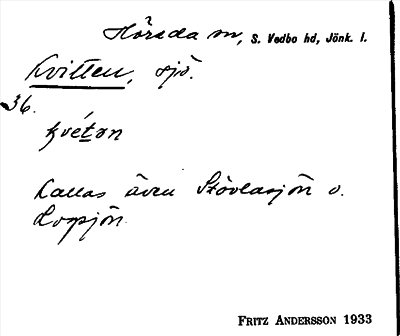 Hörsda sn, S. Vedbo hd, Jönk. l.
Kvitten, sjö.
36.
kvétən
Kallas även Stövlasjön o.
Lopsjön.
FRITZ ANDERSSON 1933